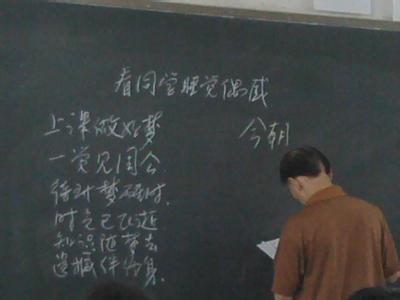 看同学睡觉偶感
今朝
上课做好梦
一觉见周公
待到梦醒时
时光已飞逝
知识随梦去
遗憾伴你身